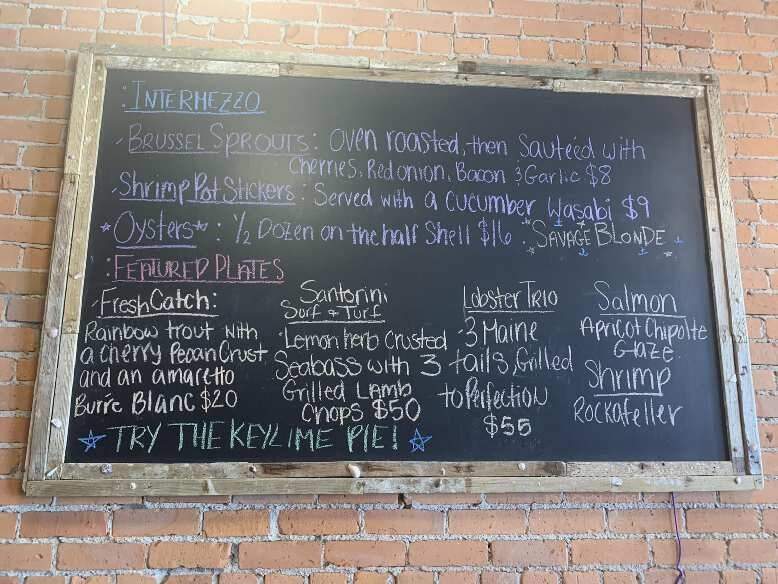 : INTERMEZZO
- BRUSSEL SPROUTS: Oven roasted, then Sauteéd with
Cherries, Red onion, Bacon & Garlic $8
- Shrimp Pot Stickers: Served with a cucumber Wasabi $9
*Oysters*: 1/2 Dozen on the half Shell $16. *SAVAGE BLONDE*
: FEATURED PLATES
- Fresh Catch:
Rainbow trout with
a cherry Pecan Crust
and an amaretto
Burré Blanc $20
Santorini
Surf + Turf
-Lemon herb Crusted
Seabass with 3
Grilled Lamb
Chops $50
Lobster Trio
-3 Maine
tails, Grilled
to Perfection
$55
Salmon
Apricot Chipolte
Glaze.
Shrimp
Rockafeller
☆ TRY THE KEYLIME PIE! ☆